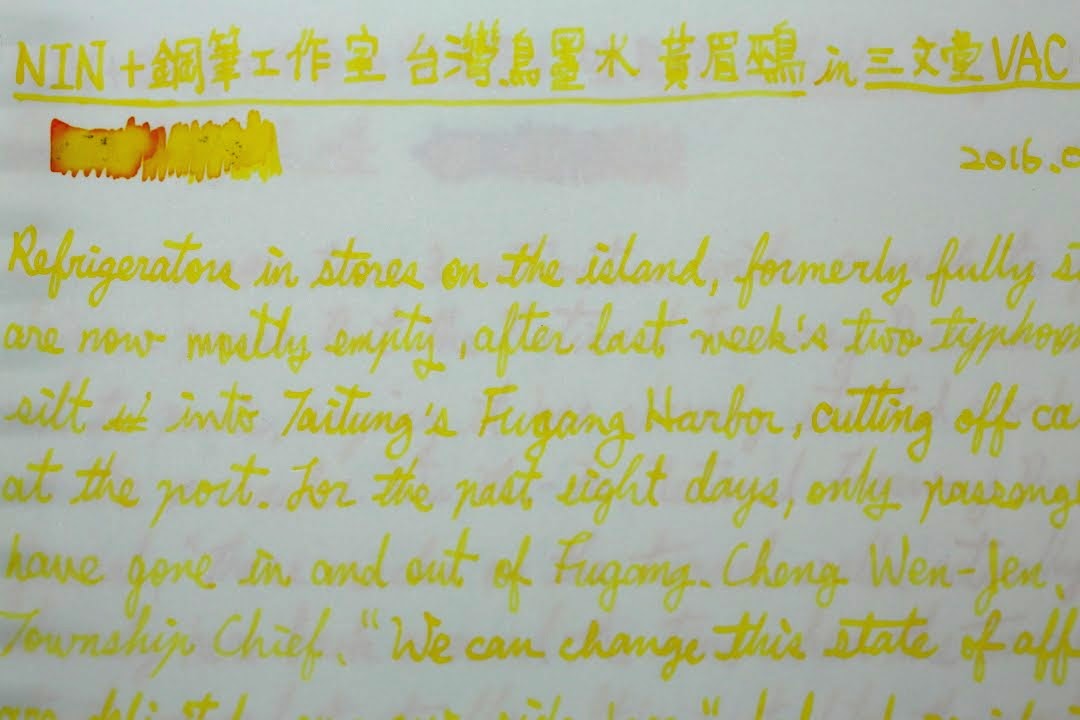 NIN+鋼筆工作室 台灣鳥墨水 黃眉鵐 in 三文堂 VAC
2016.0
Refrigerators in stores on the island, formerly fully
are now mostly empty, after last week's two typhoon
silt into Taitung's Fugang Harbor, cutting off ca
at the port. For the past eight days, only passeng
have gone in and out of Fugang. Cheng Wen-Jen,
Township Chief, "We can change this state of aff
are